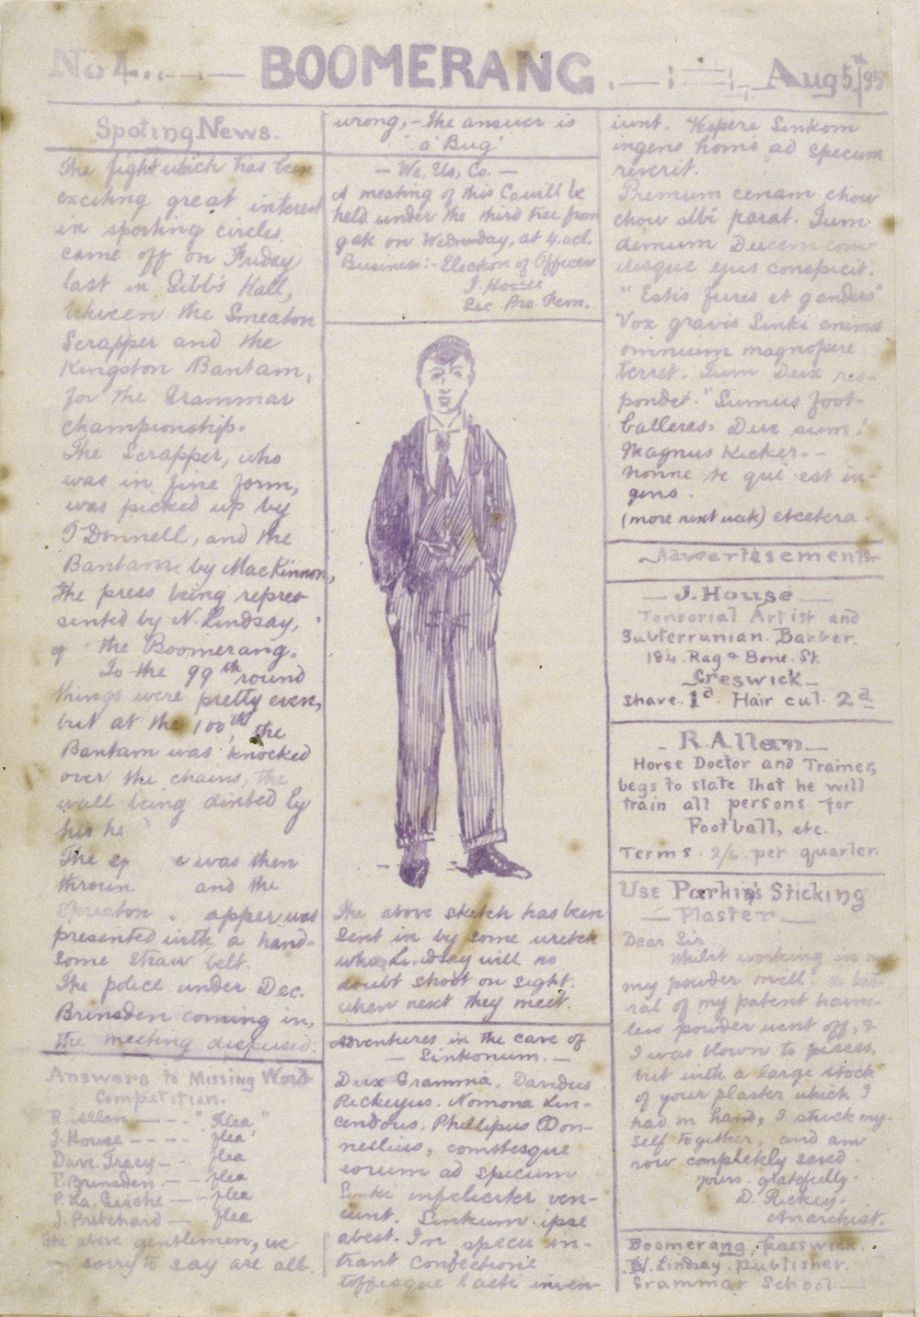 No 4. BOOMERANG. Aug 5th/95
Spoting News.
The fight which has been
exciting great interest
in sporting circles,
came off on Friday
last in Gibb's Hall,
between the Smeaton
Scrapper and the
Kingston Bantam,
for the Grammar
championship.
The Scrapper, who
was in fine form,
was picked up by
O'Donnell, and the
Bantam by MacKinnon,
the press being repres-
ented by N. Lindsay,
of the Boomerang.
To the 99th round
things were pretty even,
but at the 100th, the
Bantam was knocked
over the chains, the
wall being dinted by
his he
The sp was then
thrown and the
Smeaton apper was
presented with a hand-
some straw belt.
The police under Dec.
Brinsden coming in,
the meeting dispused.
Answers to Missing Word
Competition.
R. Allen - - - "Flea"
J. House - - - - "flea"
Dave Tracy - - flea
P. Brinsden. - - flea
P. La Gerche - - flea
J. Pritchard - flea
The above gentlemen, we
sorry to say are all
wrong, - the answer is
a 'Bug'
- We, Us, Co. -
A meeting of this Co. will be
held under the third tree from
gate on Wednesday, at 4 ocl.
Business:- Election of Officers
J. House
Sec. Pro. Tem.
The above sketch has been
sent in by some wretch
whom Lindsay will no
doubt shoot on sight.
when next they meet.
Adventures in the cave of
- Sinkonum. -
Dux Gramma, Davidus
Rickeyus. Nomona Lin-
cendorius, Phillipus ODon-
nellius, comitesque
eorum ad specum
Sinki infeliciter ven-
iunt. Sinkum ipse
abest. In specu in-
trant confectione
toffeeque lacti inven-
iunt. Vespere Sinkom
ingens homo ad specum
reverit.
Primum cenam chow
chow sibi parat. Tum
demum Ducem com-
itesque ejus conspicit.
"Estis fures et ganders"
Vox gravis Sinki animos
omnium magnopere
terret. Tum Dux res-
pondet. "Sumus foot-
balleres, Dux sum!
Magnus Kicker. -
nonne te qui est in-
gens.
(more next week) etcetera.
Advertisements
- J. House -
Tonsorial Artist and
Subterranian Barber.
184 Rag & Bone. St.
Creswick
Shave. 1d. Hair cut. 2d
- R. Allen -
Horse Doctor and Trainer,
begs to state that he will
train all persons for
Football, etc.
Terms. 2/6 per quarter.
Use Parkin's Sticking
- Plaster -
Dear Sir
Whilst working in my
my powder mill, a bar-
ral of my patent harm-
less powder went off, &
I was blown to pieces,
but with a large stock
of your plaster which I
had on hand, I stuck my-
self together, and am
now completely saved.
yours gratefully.
D. Rickey.
Anarchist.
Boomerang, Creswick.
W. Lindsay. Publisher.
Grammar School